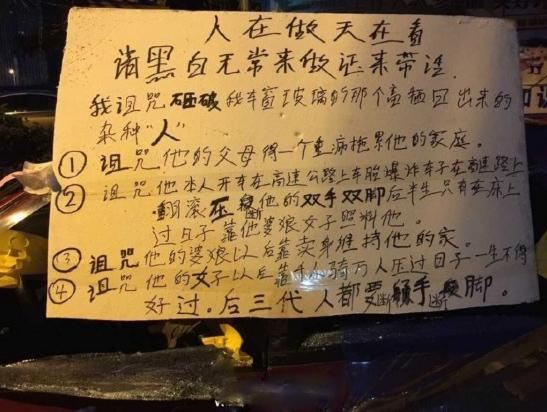 人在做天在看
请黑白无常来做证来带话.
我诅咒砸破我车窗玻璃的那个畜牲日出来的
杂种“人”
① 诅咒他的父母得一个重病拖累他的家庭.
② 诅咒他本人开车在高速公路上车胎爆炸车子在高速路上
翻滚压断他的双手双脚后半生只有在床上
过日子靠他婆娘女子照料他.
③ 诅咒他的婆娘以后靠卖身维持他的家.
④ 诅咒他的女子以后靠过人骑万人压过日子一生不得
好过.后三代人都要断手断脚.